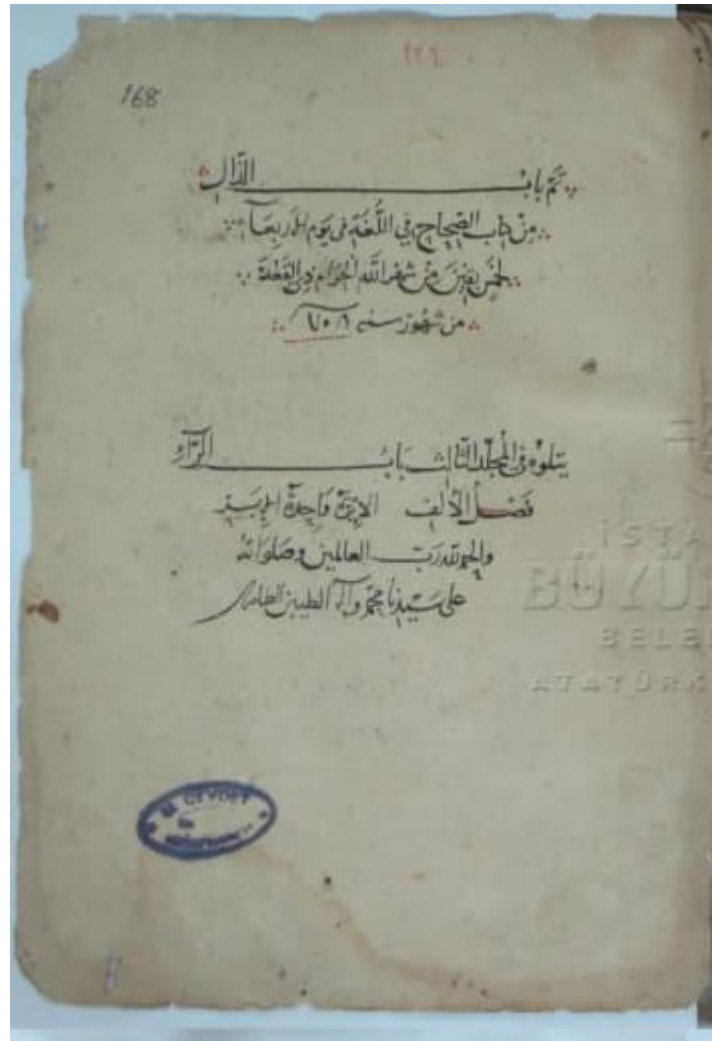 ١٢٩
168
تم باب الذال
من كتاب الصحاح في اللغة في يوم الاربعآ
لخمس بقين من شهر الله الحرام ذي القعدة
من شهور سنه
يتلوه في المجلد الثالث باب الرآء
فصل الألف الإبرة واحدة الإبر
والحمد لله رب العالمين وصلواته
على سيدنا محمد وآله الطيبين الطاهرين
İSTA
BÜYÜ
BELE
ATATÜRK
CEVDET